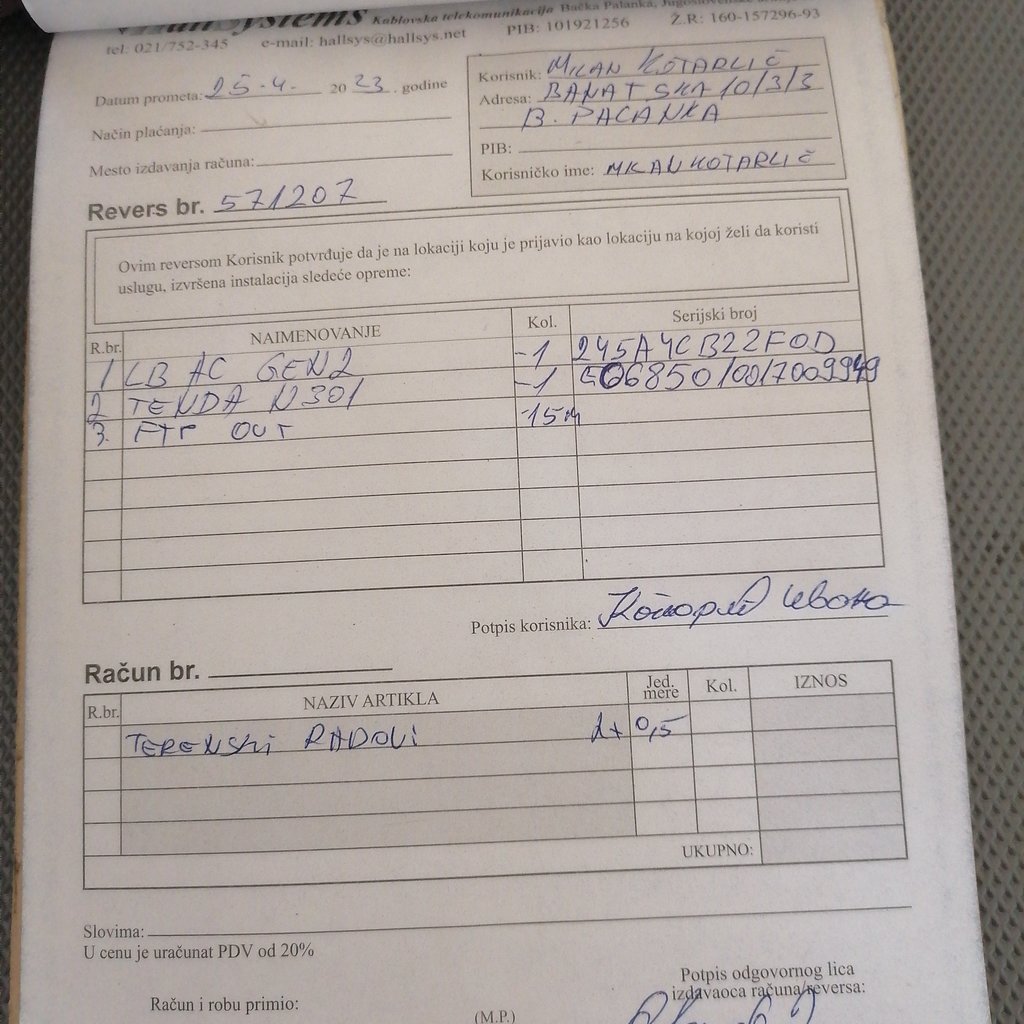 Systems Kablovska telekomunikacija Bačka Palanka,
tel: 021/752-345 e-mail: hallsys@hallsys.net PIB: 101921256 Ž.R: 160-157296-93
Datum prometa: 25-4. 2023. godine
Način plaćanja:
Mesto izdavanja računa:
Korisnik: MILAN KOTARLIĆ
Adresa: BANATSKA 10/3/3
B. PACANKA
PIB:
Korisničko ime: MILANKOTARLIĆ
Revers br. 571207
Ovim reversom Korisnik potvrđuje da je na lokaciji koju je prijavio kao lokaciju na kojoj želi da koristi
uslugu, izvršena instalacija sledeće opreme:
R.br. NAIMENOVANJE Kol. Serijski broj
1 LB AC GEN2 -1 245A4CB22FOD
2 TENDA N301 -1
3. FTP OUT -15m
Potpis korisnika:
Račun br.
R.br. NAZIV ARTIKLA Jed. mere Kol. IZNOS
TERENSKI RADOVI 1x 0,5
UKUPNO:
Slovima:
U cenu je uračunat PDV od 20%
Potpis odgovornog lica
izdavaoca računa/reversa:
Račun i robu primio:
(M.P.)